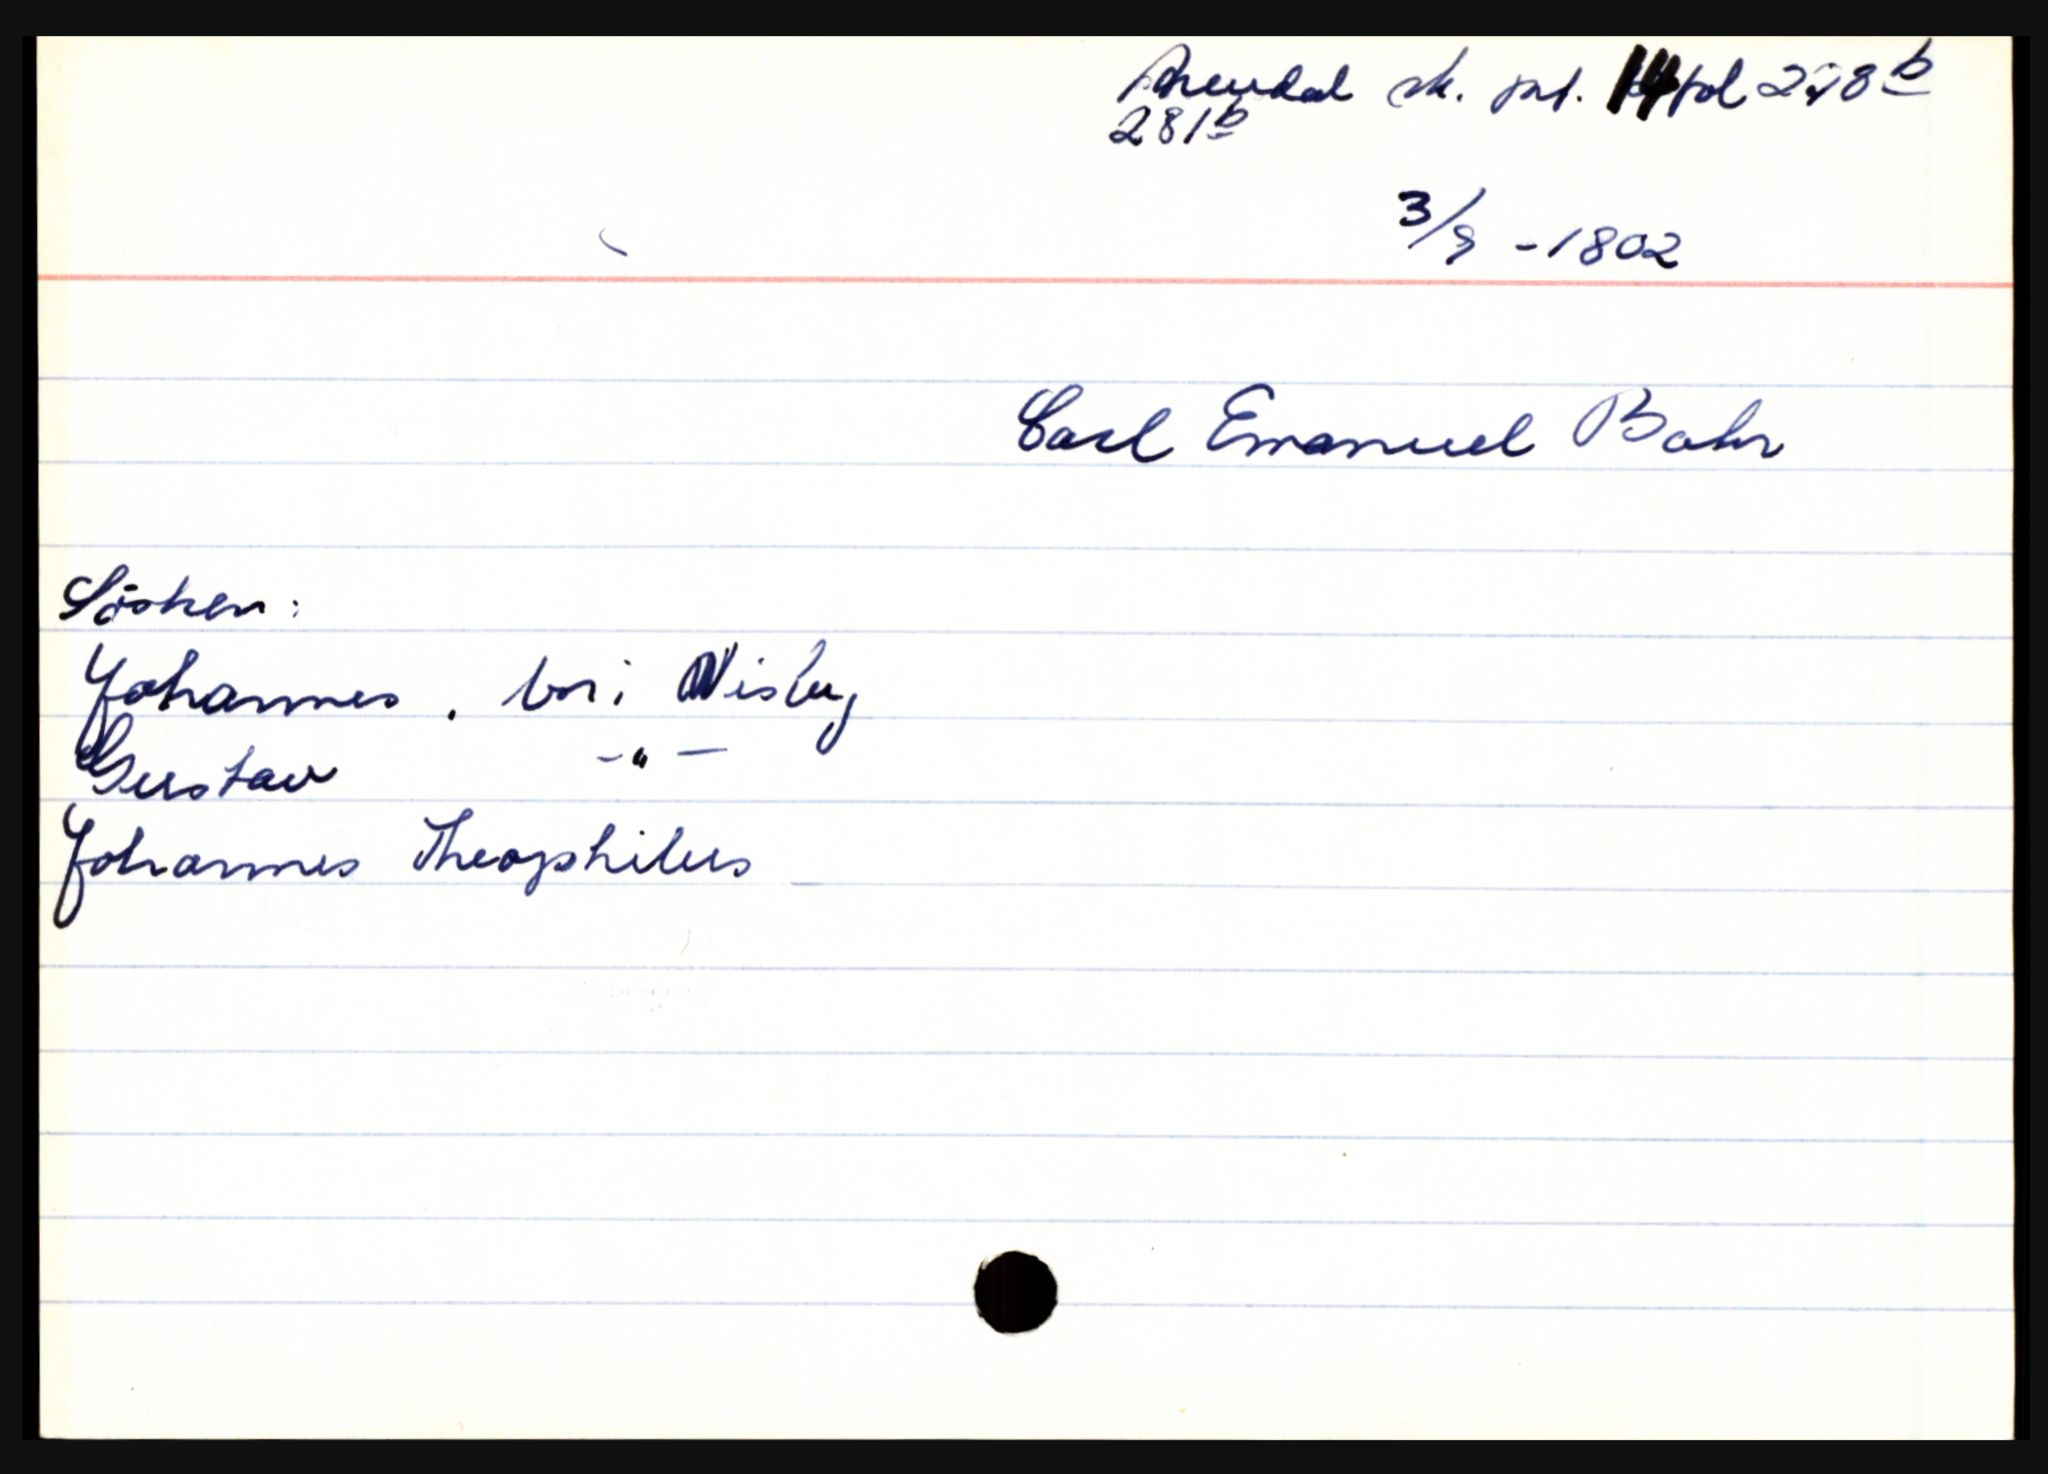 Arendal sk. prt. 14 fol 278 b
281 b
3/9 - 1802
Carl Emanuel Bahr
Søsken:
Johannes. bor i Wisby
Gustav -"-
Johannes Theophilus